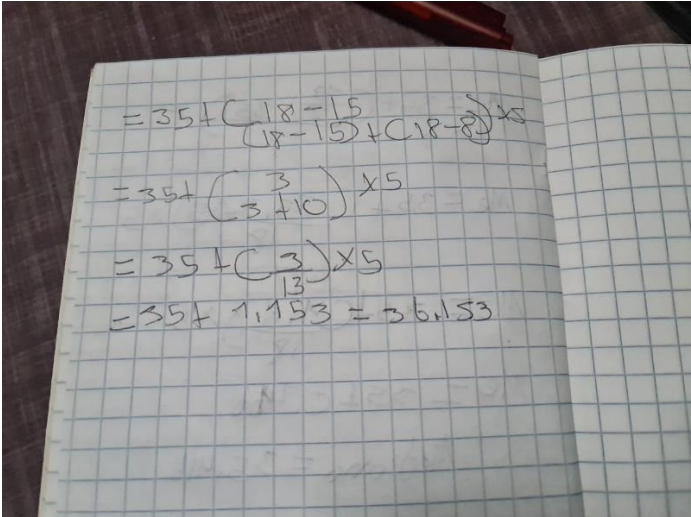 = 35 + ( 18 - 15
(18 - 15) + (18 - 8) ) x5
= 35 + ( 3
3 + 10 ) x5
= 35 + ( 3
13 ) x5
= 35 + 1,153 = 36,153